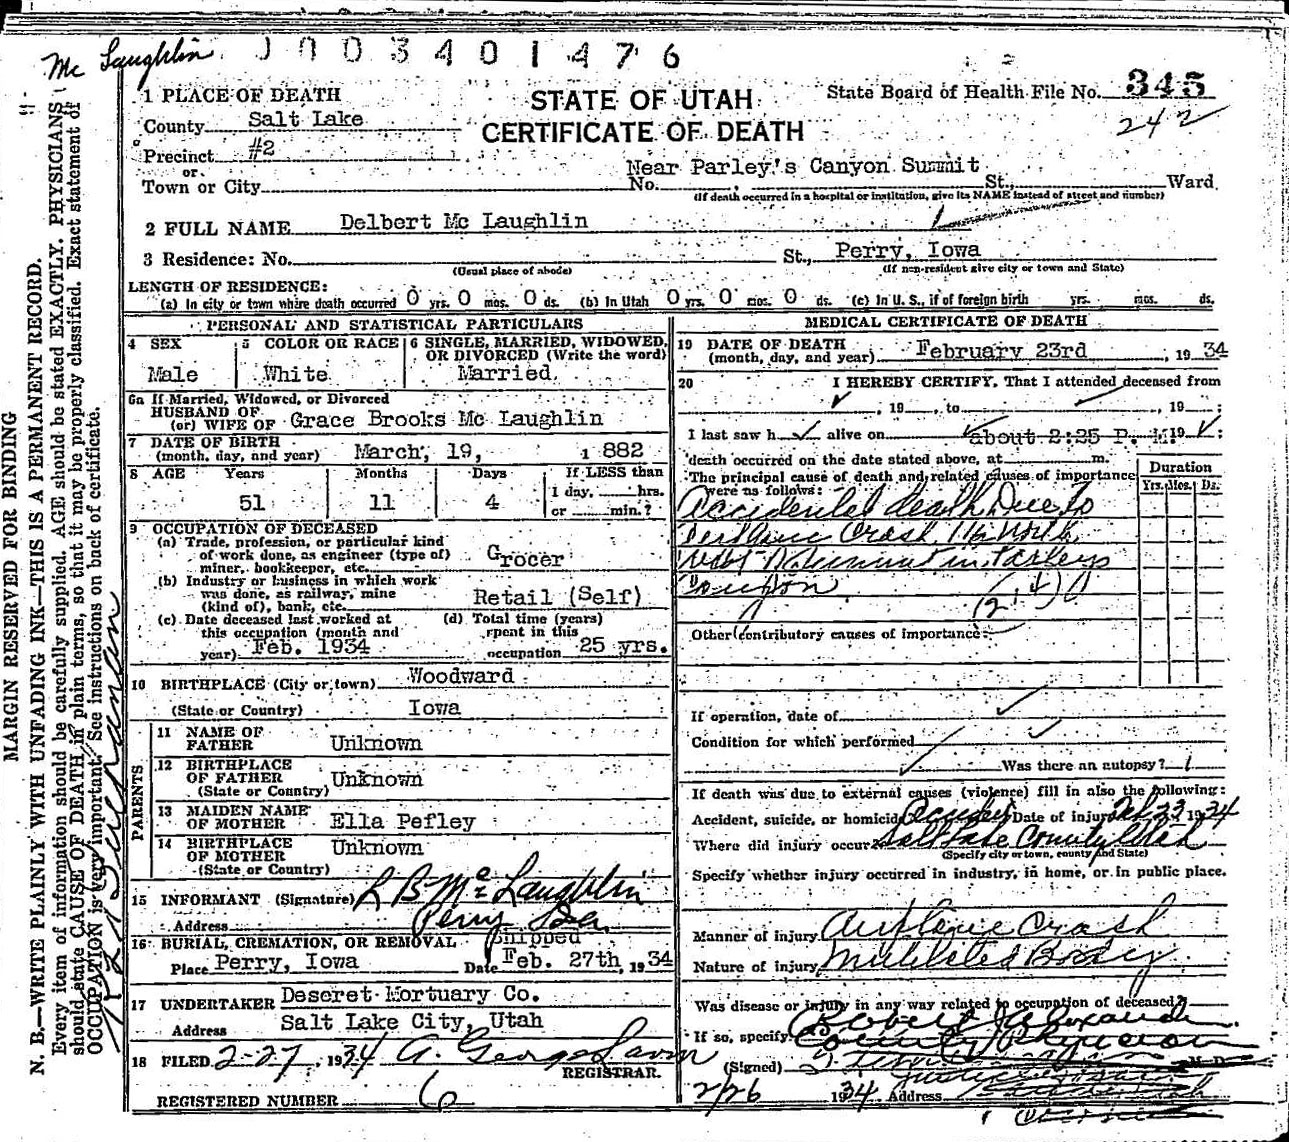 Mc Laughlin
003401476
1 PLACE OF DEATH
STATE OF UTAH
CERTIFICATE OF DEATH
State Board of Health File No. 345
242
County Salt Lake
Precinct #2
or
Near Parley's Canyon Summit
Town or City No. St., Ward
(If death occurred in a hospital or institution, give its NAME instead of street and number)
2 FULL NAME Delbert Mc Laughlin
3 Residence: No. St., Perry, Iowa
(Usual place of abode) (If non-resident give city or town and State)
LENGTH OF RESIDENCE:
(a) In city or town where death occurred 0 yrs. 0 mos. 0 ds. (b) In Utah 0 yrs. 0 mos. 0 ds. (c) In U. S., if of foreign birth yrs. mos. ds.
PERSONAL AND STATISTICAL PARTICULARS
4 SEX
Male
5 COLOR OR RACE
White
6 SINGLE, MARRIED, WIDOWED, OR DIVORCED (Write the word)
Married
6a If Married, Widowed, or Divorced
HUSBAND OF
(or) WIFE OF Grace Brooks Mc Laughlin
7 DATE OF BIRTH
(month, day, and year) March, 19, 1882
8 AGE Years Months Days If LESS than
51 11 4 1 day, hrs.
or min.?
9 OCCUPATION OF DECEASED
(a) Trade, profession, or particular kind
of work done, as engineer (type of)
miner, bookkeeper, etc. Grocer
(b) Industry or business in which work
was done, as railway, mine
(kind of), bank, etc. Retail (Self)
(c) Date deceased last worked at
this occupation (month and
year) Feb. 1934
(d) Total time (years)
spent in this
occupation 25 yrs.
10 BIRTHPLACE (City or town) Woodward
(State or Country) Iowa
PARENTS
11 NAME OF
FATHER Unknown
12 BIRTHPLACE
OF FATHER Unknown
(State or Country)
13 MAIDEN NAME
OF MOTHER Ella Pefley
14 BIRTHPLACE Unknown
OF MOTHER
(State or Country)
15 INFORMANT (Signature) L B Mc Laughlin
Address Perry Ia.
16 BURIAL, CREMATION, OR REMOVAL Shipped
Place Perry, Iowa Date Feb. 27th, 1934
17 UNDERTAKER Deseret Mortuary Co.
Address Salt Lake City, Utah
18 FILED 2-27, 1934 A. George
REGISTRAR.
REGISTERED NUMBER 6
MEDICAL CERTIFICATE OF DEATH
19 DATE OF DEATH
(month, day, and year) February 23rd, 1934
20 I HEREBY CERTIFY, That I attended deceased from
, 19 , to , 19 ;
I last saw h alive on about 2:25 P. M 19 ;
death occurred on the date stated above, at m.
The principal cause of death and related causes of importance
were as follows:
Duration
Yrs. Mos. Ds.
Accidental death Due to
Crash
in Parleys
Other contributory causes of importance:
If operation, date of
Condition for which performed
Was there an autopsy?
If death was due to external causes (violence) fill in also the following:
Accident, suicide, or homicide Date of injury Feb 23 1934
Where did injury occur Salt Lake County Utah
(Specify city or town, county and State)
Specify whether injury occurred in industry, in home, or in public place.
Manner of injury Airplane Crash
Nature of injury Body
Was disease or injury in any way related to occupation of deceased?
If so, specify
County Physician
(Signed) M. D.
2/26 1934 Address
MARGIN RESERVED FOR BINDING
N. B.—WRITE PLAINLY WITH UNFADING INK—THIS IS A PERMANENT RECORD.
Every item of information should be carefully supplied. AGE should be stated EXACTLY. PHYSICIANS
should state CAUSE OF DEATH in plain terms, so that it may be properly classified. Exact statement of
OCCUPATION is very important. See instructions on back of certificate.